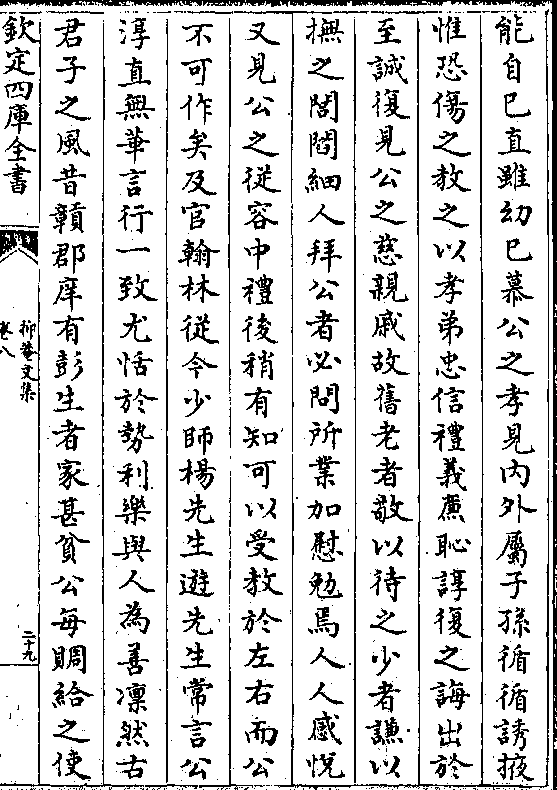 能自已直雖幼已慕公之孝見内外屬子孫循循誘掖
惟恐傷之教之以孝弟忠信禮義廉恥諄復之誨出於
至誠復見公之慈親戚故舊老者敬以待之少者謙以
撫之閭閻細人拜公者必問所業加慰勉焉人人感悅
又見公之從容中禮後稍有知可以受教於左右而公
不可作矣及官翰林從今少師楊先生遊先生常言公
淳直無華言行一致尤恬於勢利樂與人為善凛然古
君子之風昔贛郡庠有彭生者家甚貧公每賙給之使
欽定四庫全書
抑菴文集
卷八
二十九